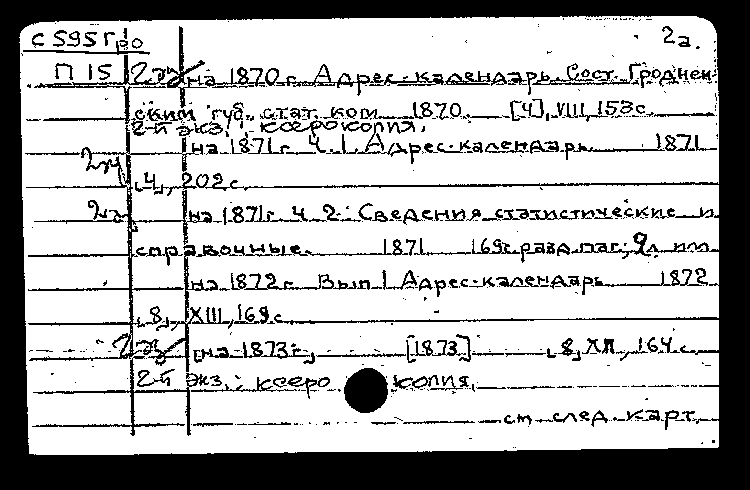 С 595 Гро 2а.
П 15 2 экз на 1870 г. Адрес-календарь. Сост. Гроднен-
ским губ. стат. ком. 1870. [4], VIII, 153 с.
2-й экз.: ксерокопия.
на 1871 г. Ч. 1. Адрес-календарь 1871
[4], 202 с.
на 1871 г. Ч. 2: Сведения статистические и
справочные. 1871 169 с. разд. паг;
на 1872 г. Вып 1 Адрес-календарь 1872
[8], XIII, 169 с.
[на 1873 г.] [1873] [8], XII, 164 с.
2-й экз.: ксеро копия.
см. след. карт.